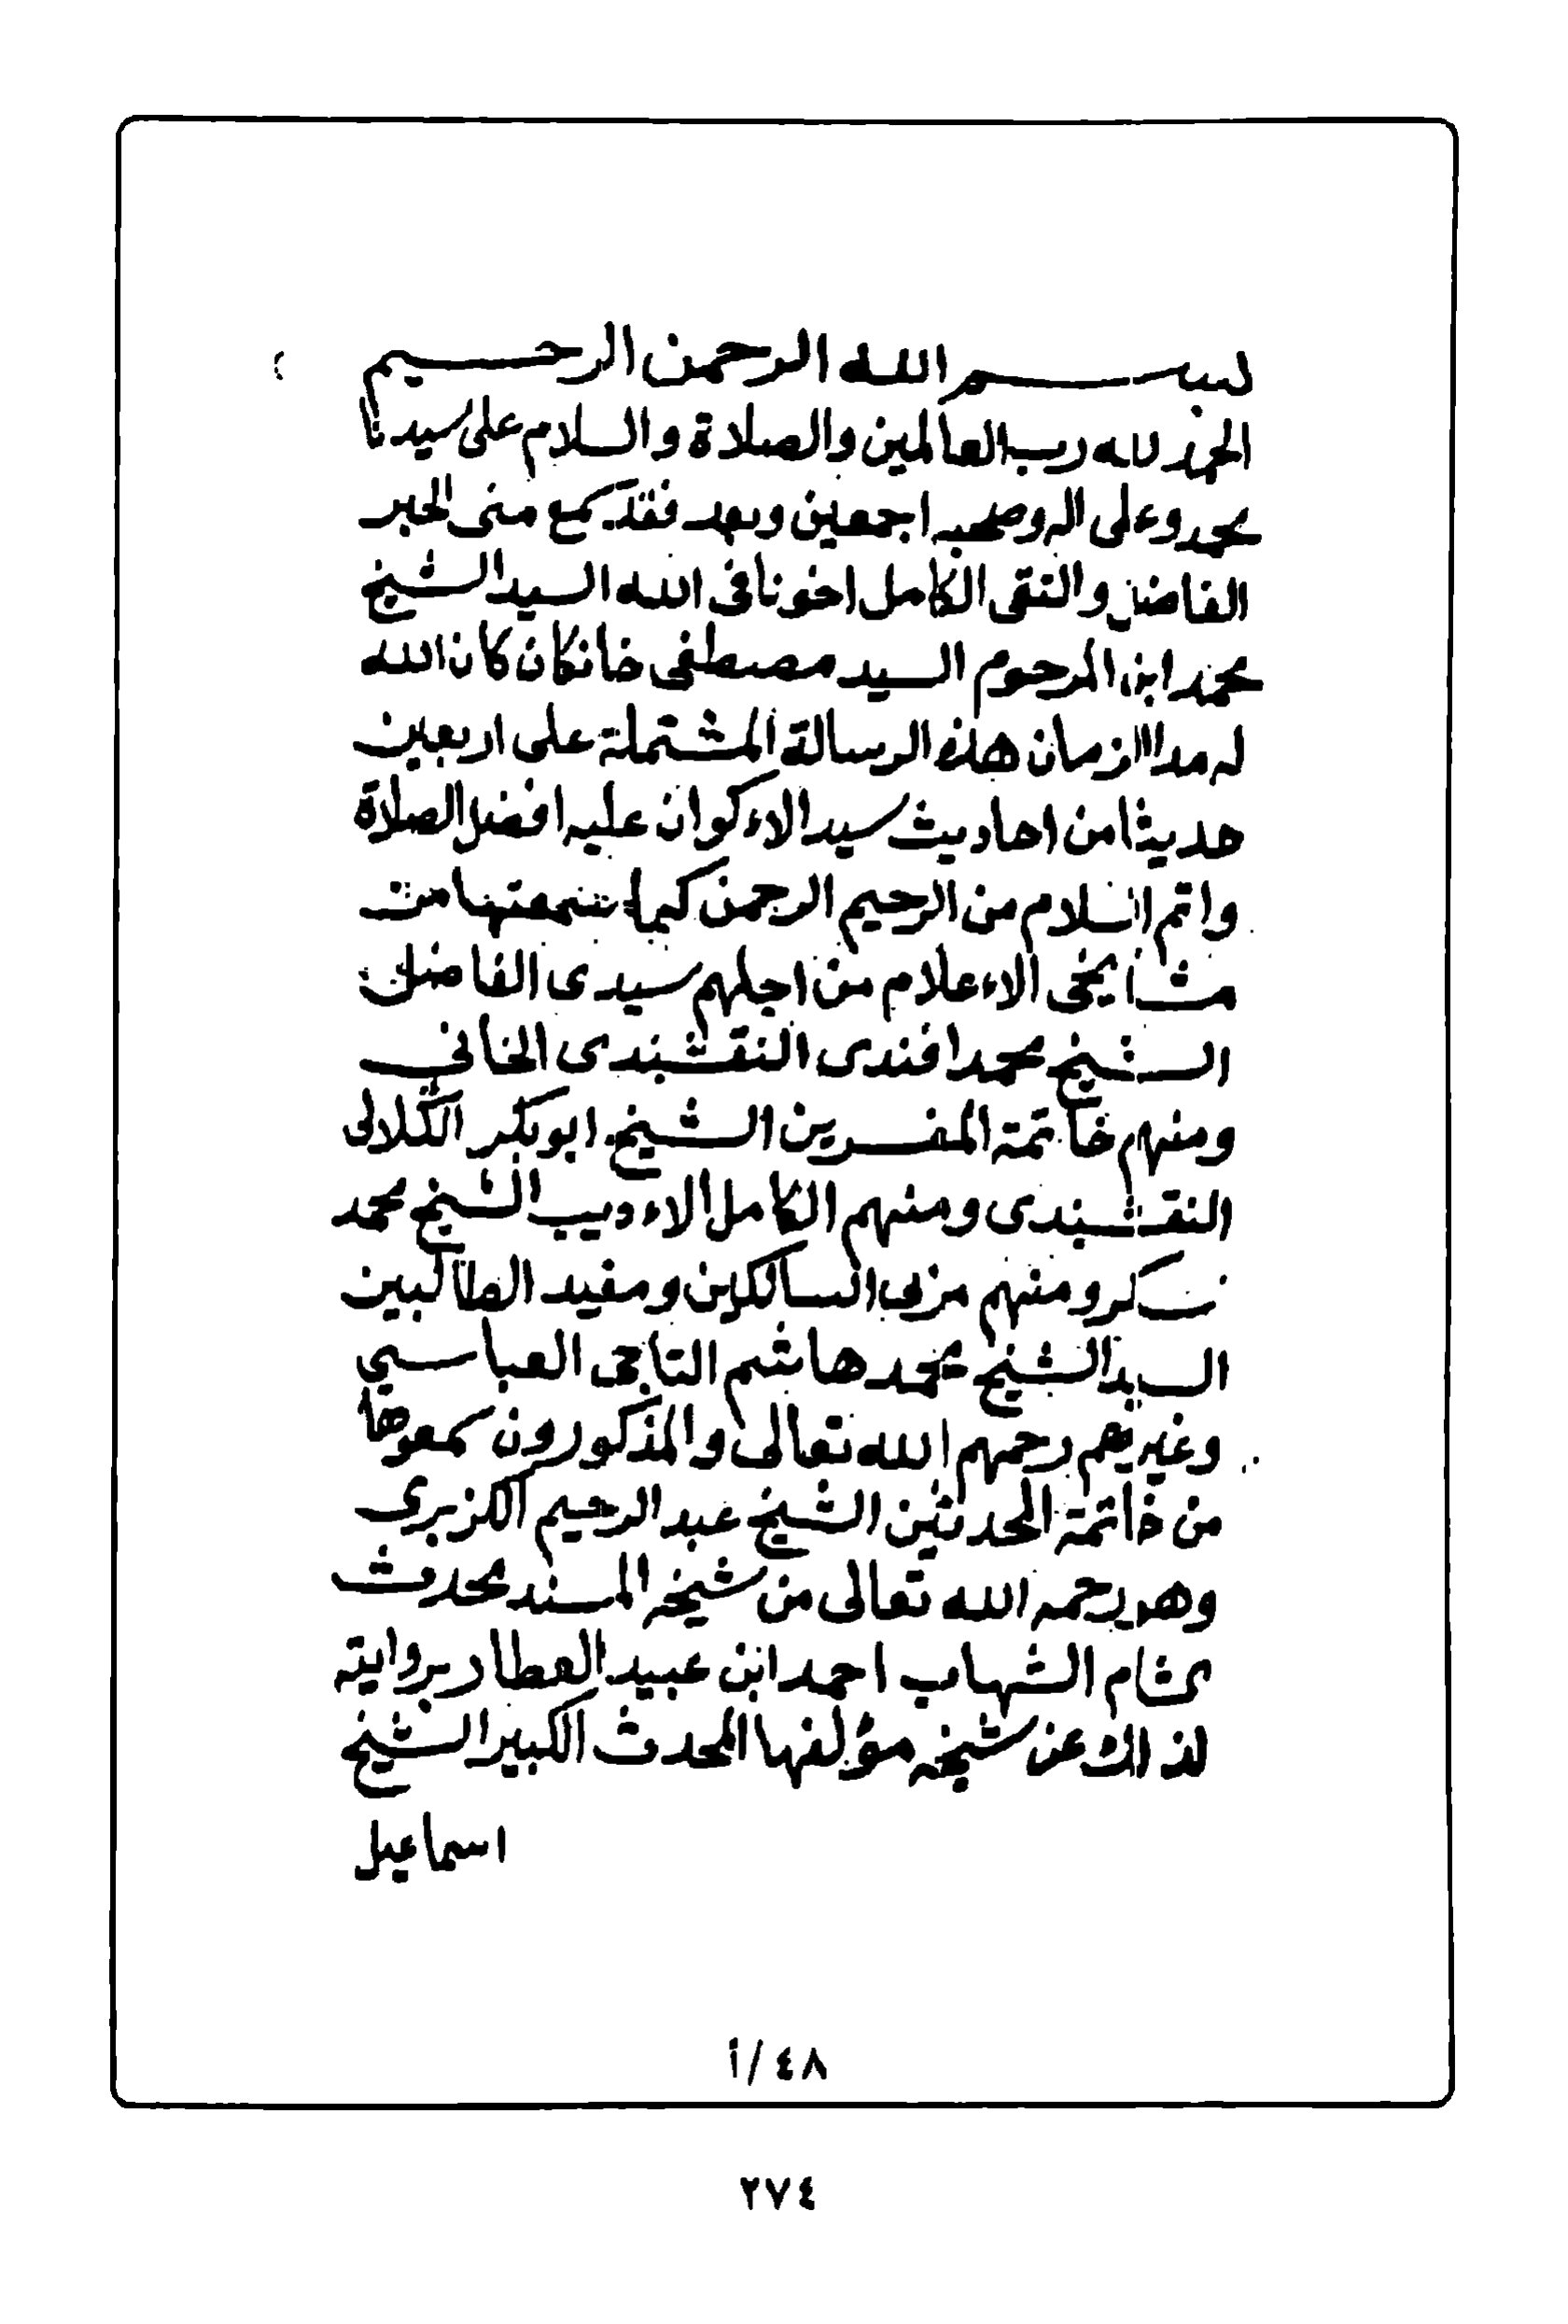 بسم الله الرحمن الرحيم
الحمد لله رب العالمين والصلاة والسلام على سيدنا
محمد وعلى اله وصحبه اجمعين وبعد فقد سمع منى الحبر
الفاضل والتقى الكامل اخونا فى الله السيد الشيخ
محمد ابن المرحوم السيد مصطفى خانكان كان الله
له مدا الازمان هذه الرسالة المشتملة على اربعين
حديثا من احاديث سيد الاءكوان عليه افضل الصلاة
واتم السلام من الرحيم الرحمن كما سمعتها من
مشايخى الاءعلام من اجلهم سيدى الفاضل
الشيخ محمد افندى النقشبندى الخانى
ومنهم خاتمة المفسرين الشيخ ابو بكر الكلالى
النقشبندى ومنهم الكامل الاءديب الشيخ محمد
سكر ومنهم مربى السالكين ومفيد الطالبين
السيد الشيخ محمد هاشم التاجى العباسى
وغيرهم رحمهم الله تعالى والمذكورون سمعوها
من خاتمة المحدثين الشيخ عبد الرحيم الكزبرى
وهو رحمه الله تعالى من شيخه المسند محدث
الشام الشهاب احمد ابن عبيد العطار بروايته
لذالك عن شيخه مؤلفها المحدث الكبير الشيخ
اسماعيل
٤٨/أ
٢٧٤